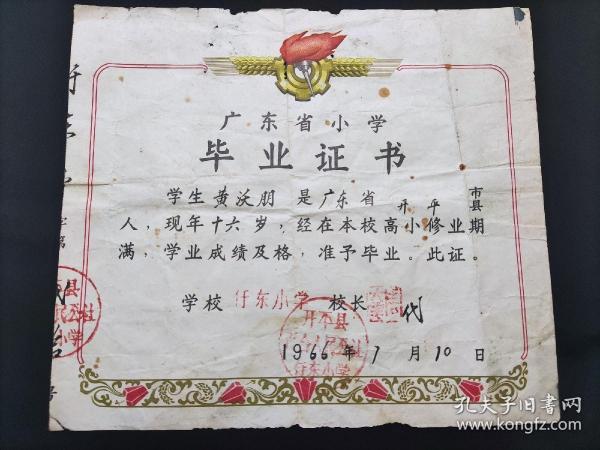 广东省小学
毕业证书
学生 黄沃朋 是 广东省 开平 市县
人，现年十六岁，经在本校高小修业期
满，学业成绩及格，准予毕业。此证。
学校 仔东小学 校长 代
开平县
仔东小学
1966年7月10日
县
民公社
小学
字第
号
孔夫子旧书网
www.kongfz.com